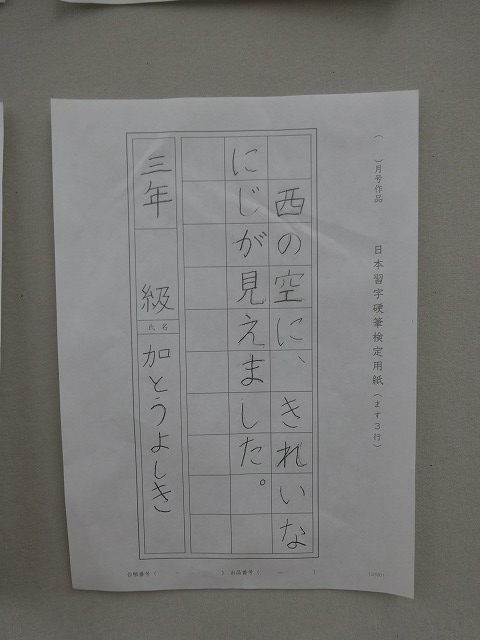 （　　）月号作品
日本習字硬筆検定用紙（ます３行）
西の空に、きれいな
にじが見えました。
三年　級
氏名
加とうよしき
会員番号（　－　）　出品番号（　－　）